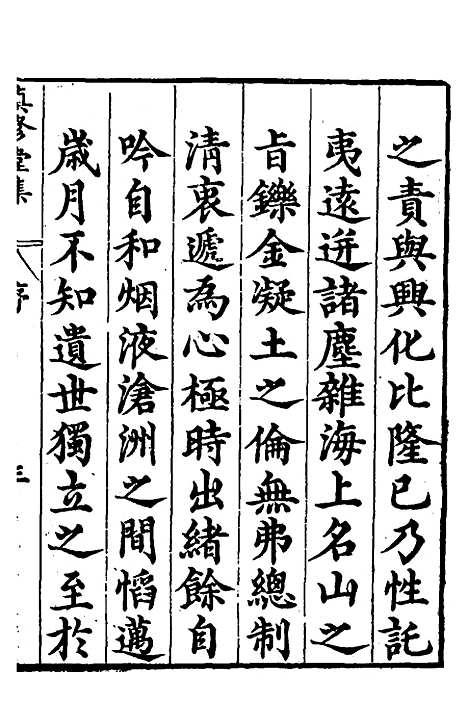 之責與興化比隆已乃性託
夷遠迸諸塵雜海上名山之
旨鑠金凝土之倫無弗總制
清衷遞為心極時出緒餘自
吟自和烟液滄洲之間慆邁
歳月不知遺世獨立之至於
真修堂集
序
三